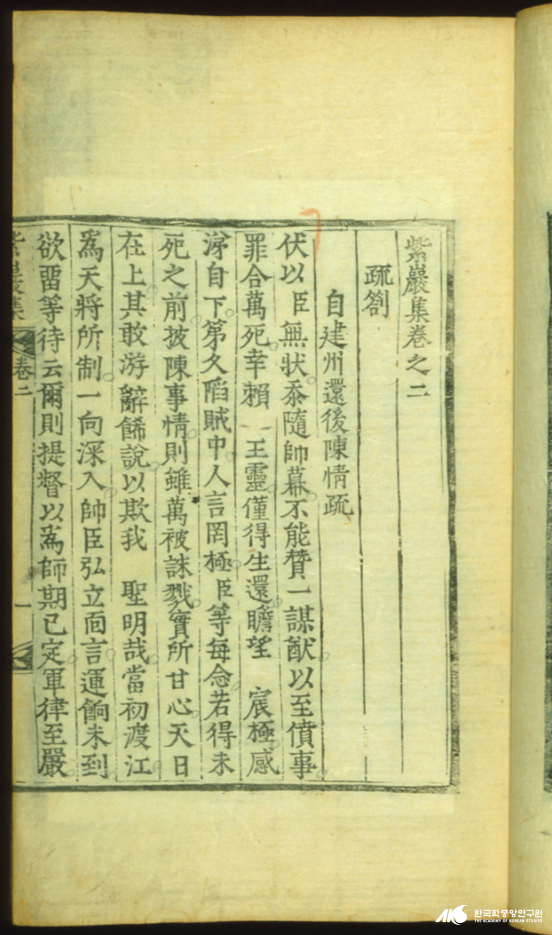 紫巖集卷之二
疏劄
自建州還後陳情疏
伏以臣無狀忝隨帥幕不能贊一謀猷以至僨事
罪合萬死幸賴 王靈僅得生還瞻望 宸極感
涕自下第久陷賊中人言罔極臣等每念若得未
死之前披陳事情則雖萬被誅戮實所甘心天日
在上其敢游辭餙說以欺我 聖明哉當初渡江
爲天將所制一向深入帥臣弘立面言運餉未到
欲留等待云爾則提督以爲師期已定軍律至嚴
紫巖集 卷二 一
한국학중앙연구원
THE ACADEMY OF KOREAN STUDIES